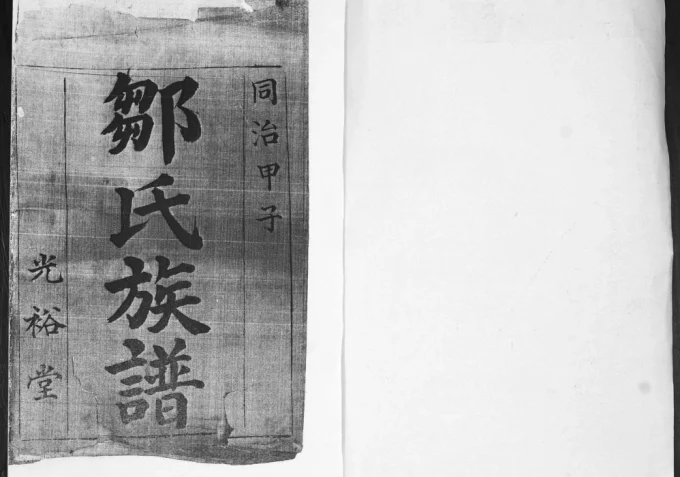 同治甲子
鄒氏族譜
光裕堂